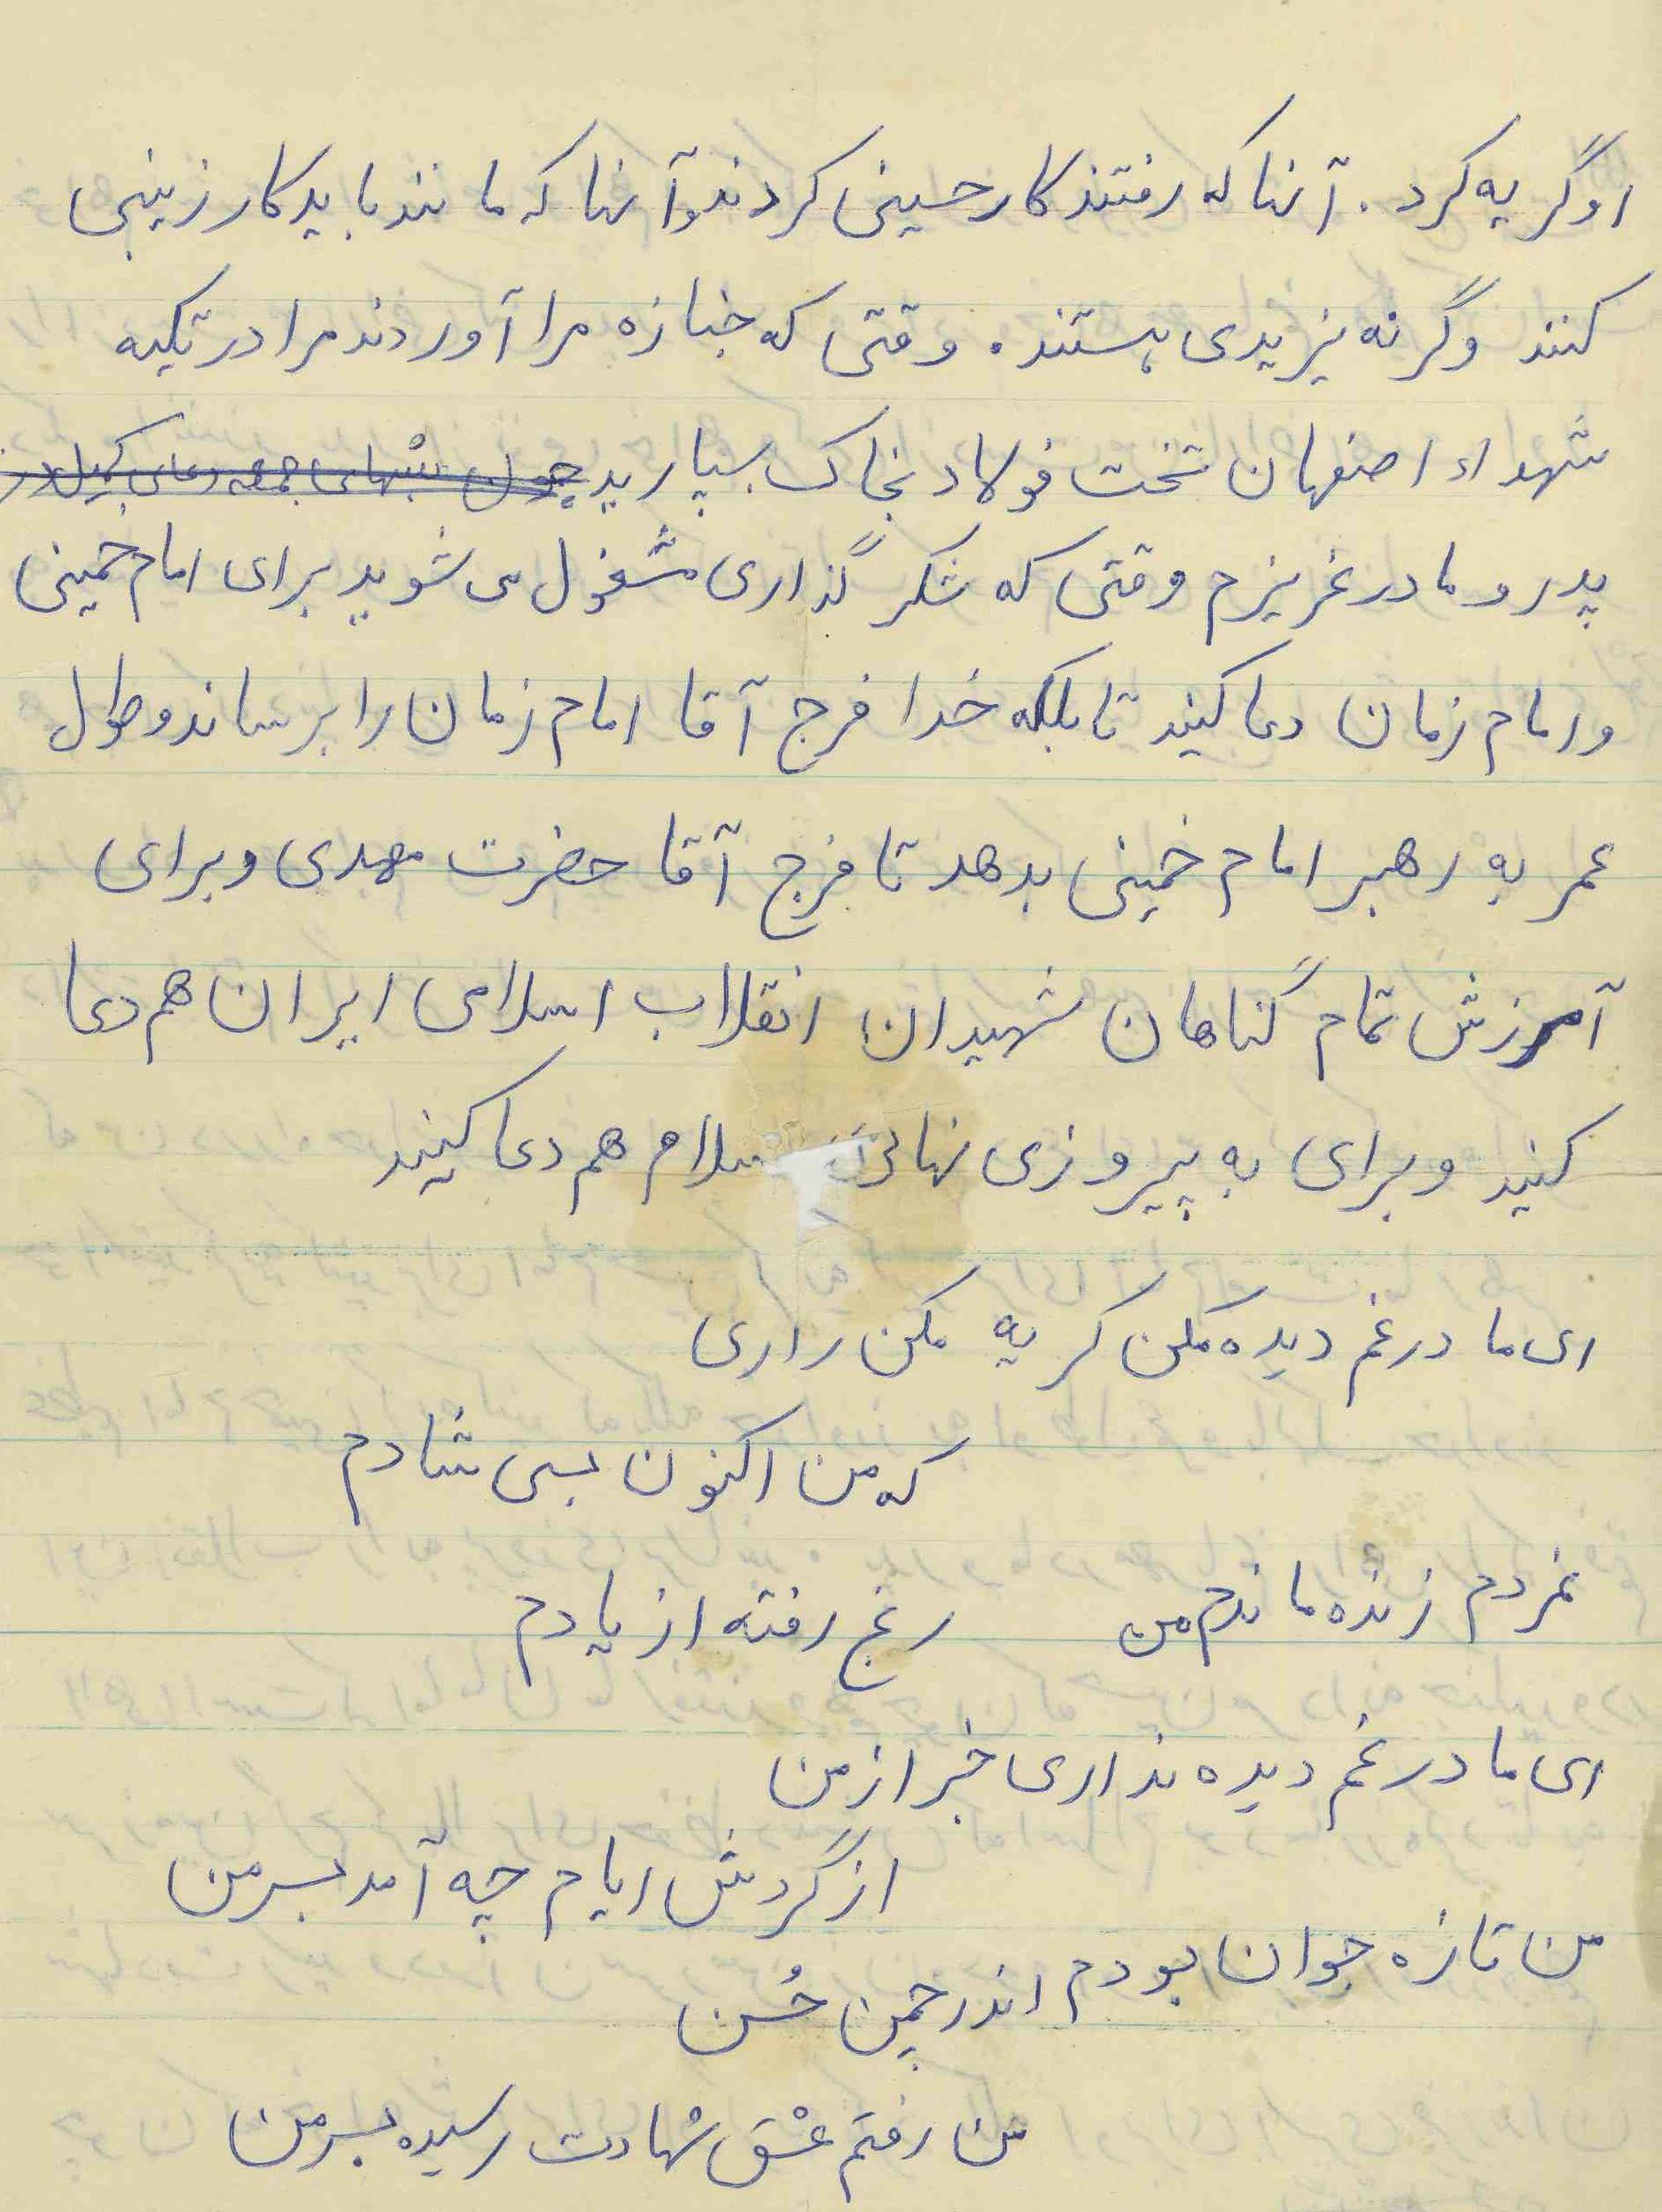 او گریه کرد. آنها که رفتند کار حسینی کردند و آنها که ماندند باید کار زینبی
کنند وگرنه یزیدی هستند. وقتی که جنازه مرا آوردند مرا در تکیه
شهداء اصفهان تخت فولاد بخاک بسپارید چون شبهای جمعه دعای کمیل در
پدر و مادر عزیزم وقتی که شکر گذاری مشغول می شوید برای امام خمینی
و امام زمان دعا کنید تا بلکه خدا فرج آقا امام زمان را برساند و طول
عمر به رهبر امام خمینی بدهد تا فرج آقا حضرت مهدی و برای
آمرزش تمام گناهان شهیدان انقلاب اسلامی ایران هم دعا
کنید و برای به پیروزی نهائی سلام هم دعا کنید
ای مادر غم دیده مکن گریه مکن زاری
که من اکنون بسی شادم
نمردم زنده ماندم من رنج رفته از یادم
ای مادر غم دیده نداری خبر از من
از گردش ایام چه آمد بسر من
من تازه جوان بودم اندر چمن حُسن
من رفتم عشق شهادت رسیده بسر من